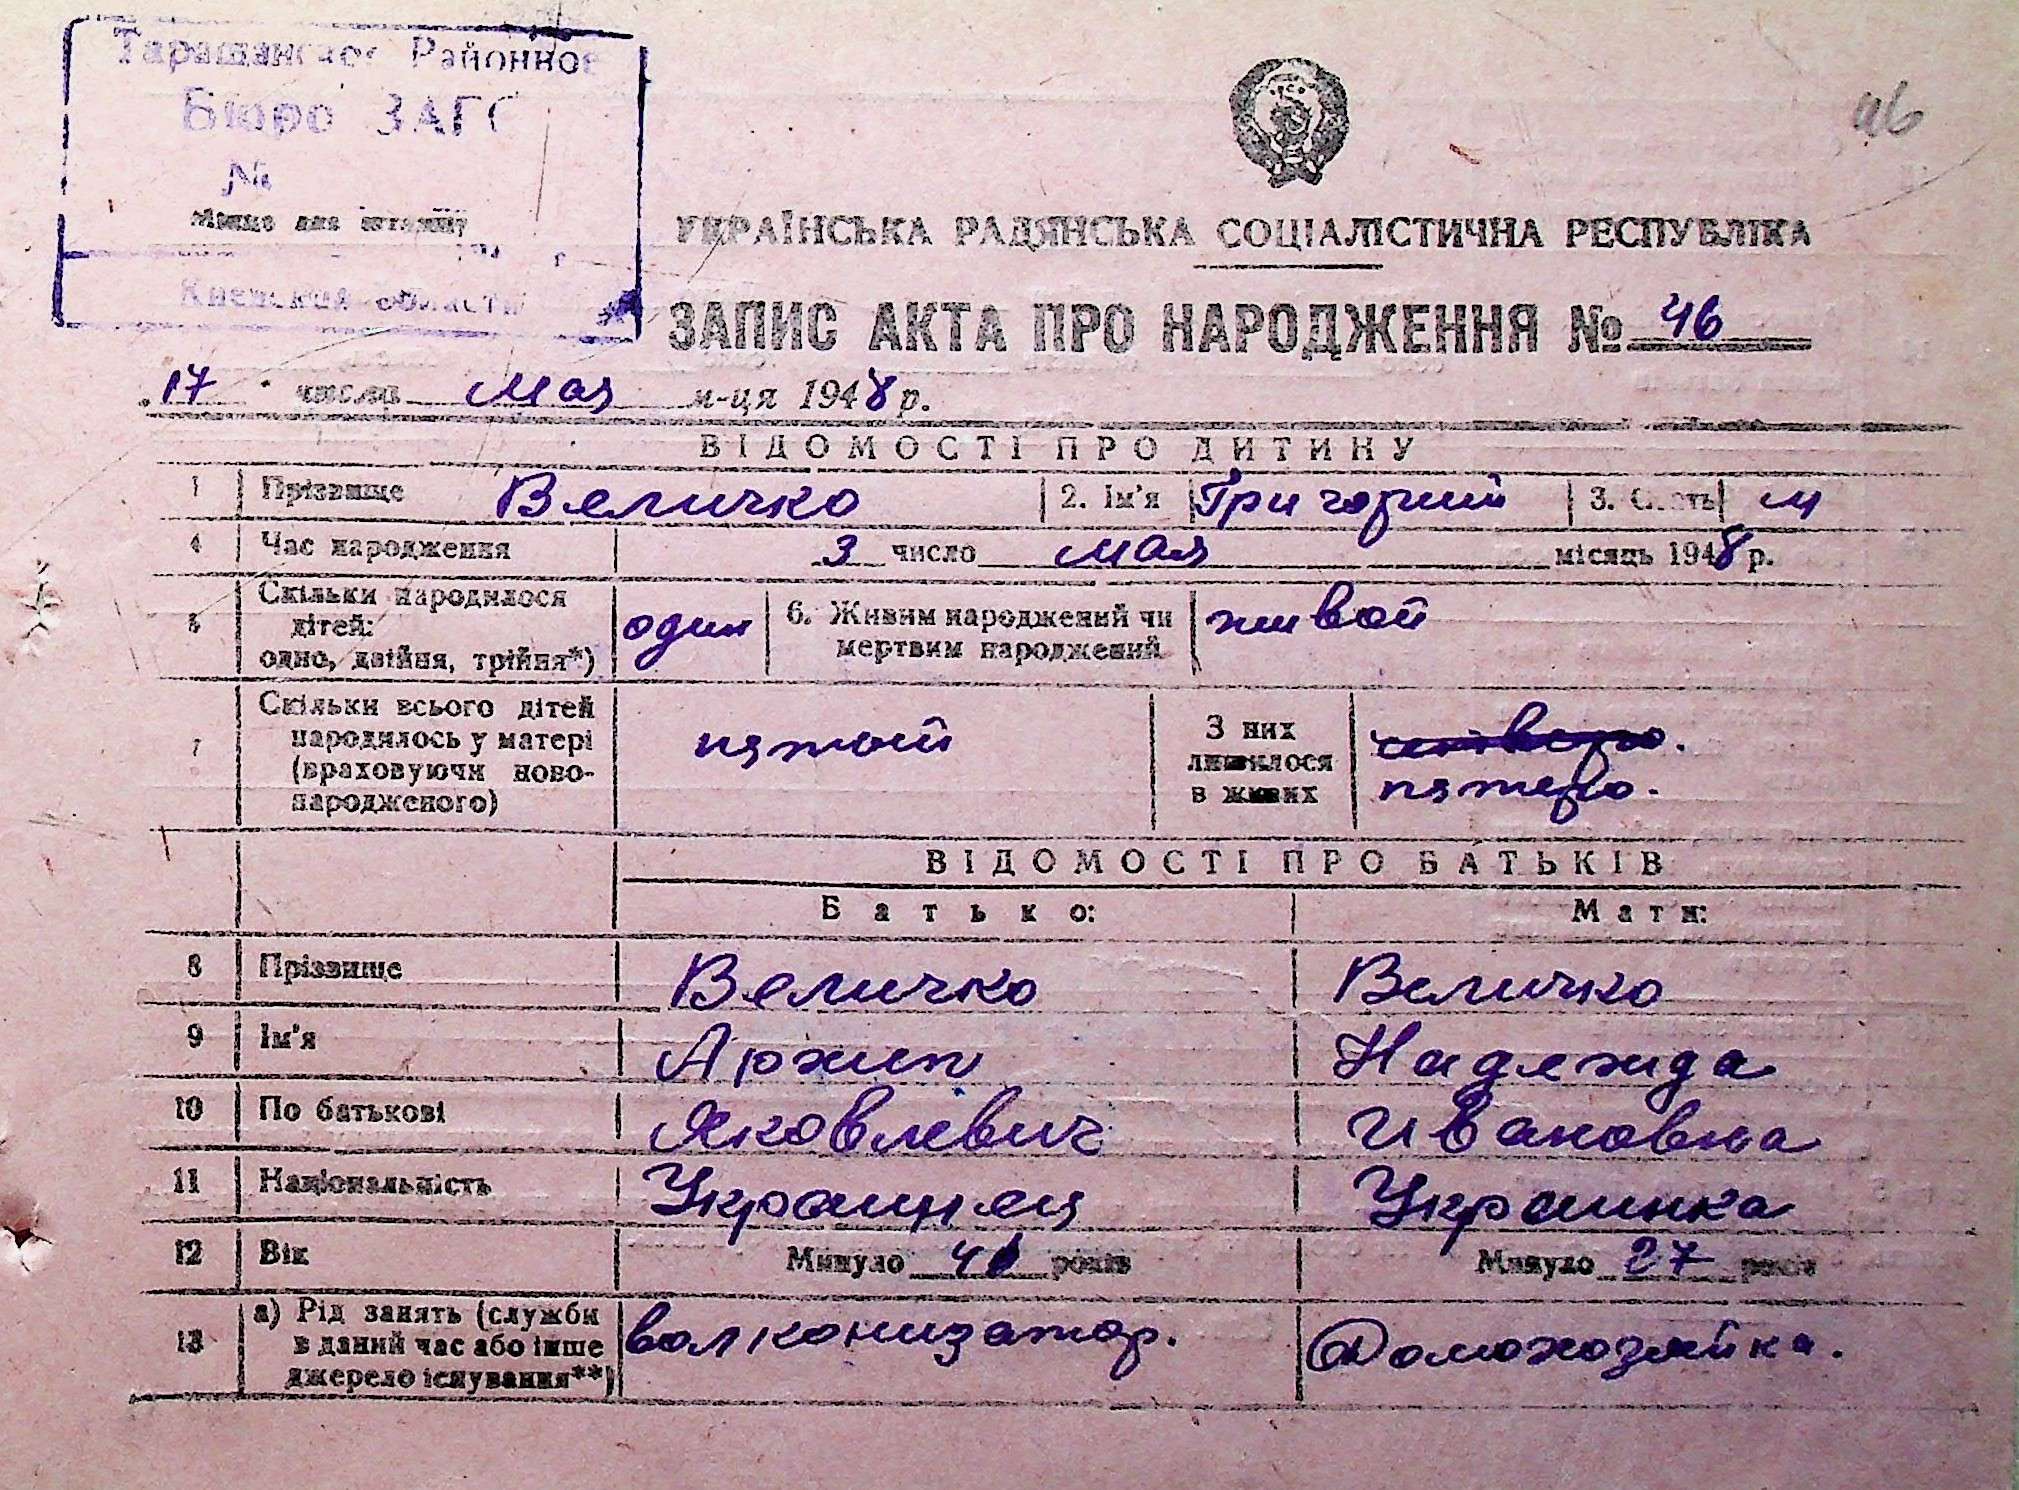 Таращанское Районное
Бюро ЗАГС
№
Місце для штампу
Киевская область
46
УКРАЇНСЬКА РАДЯНСЬКА СОЦІАЛІСТИЧНА РЕСПУБЛІКА
ЗАПИС АКТА ПРО НАРОДЖЕННЯ № 46
„17“ числа мая м-ця 1948 р.
ВІДОМОСТІ ПРО ДИТИНУ
1 Прізвище Величко 2. Ім'я Григорий 3. Стать м
4 Час народження 3 число мая місяць 1948 р.
5 Скільки народилося дітей: одно, двійня, трійня*) один 6. Живим народжений чи мертвим народжений живой
7 Скільки всього дітей народилось у матері (враховуючи новонародженого) пятый З них лишилося в живих пятеро.
ВІДОМОСТІ ПРО БАТЬКІВ
Батько: Мати:
8 Прізвище Величко Величко
9 Ім'я Архип Надежда
10 По батькові Яковлевич Ивановна
11 Національність Украинец Украинка
12 Вік Минуло років Минуло 27 років
13 а) Рід занять (служби в даний час або інше джерело існування**) волконизатор. Домохозяйка.